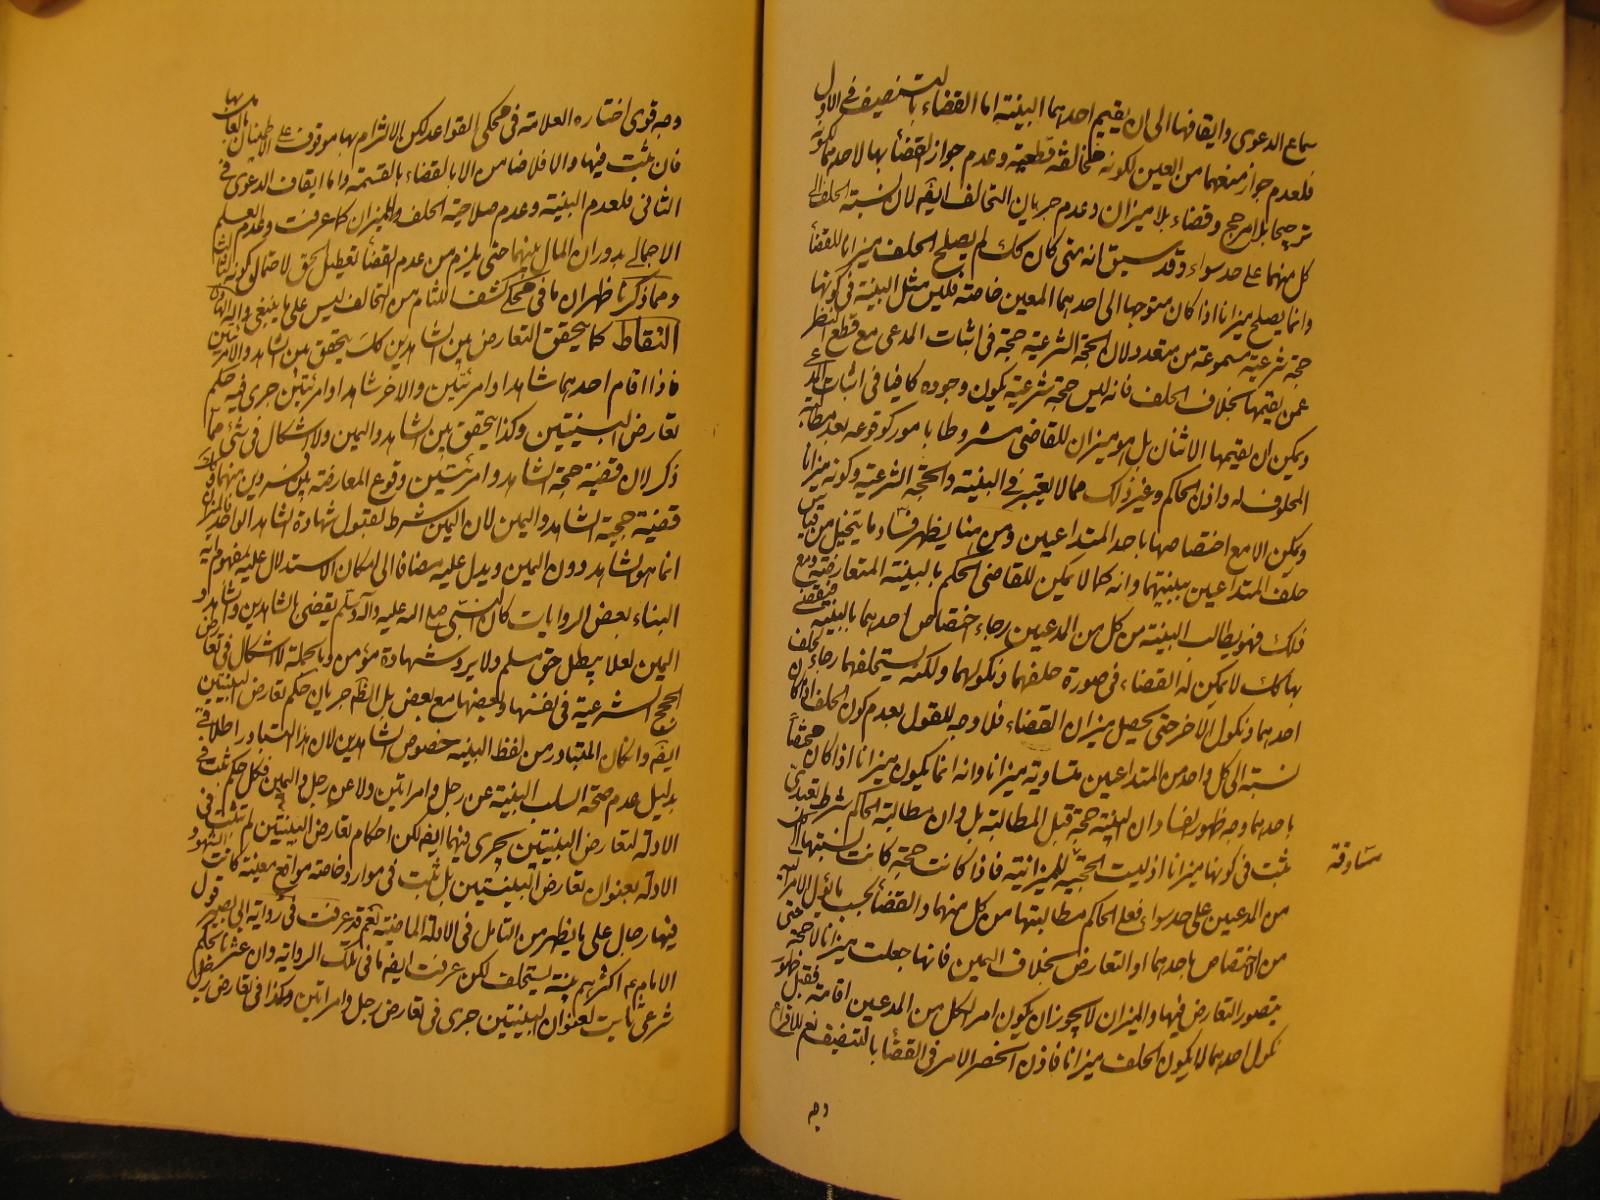 سماع الدعوى وايقافها الى ان يقيم احدهما البينة اما القضاء بالتنصيف فى الاول
فلعدم جواز منعهما من العين لكونه مخالفة قطعية وعدم جواز القضأ بها لاحدهما لكونه
ترجيحا بلا مرجح وقضاء بلا ميزان وعدم جريان التحالف ايضه لان نسبة الحلف الى
كل منهما على حد سواء وقد سبق انه متى كان كك لم يصلح الحلف ميزانا للقضأ
وانما يصلح ميزانا اذا كان متوجها الى احدهما المعين خاصة فليس مثل البينة فى كونها
حجة شرعية مسموعة من متعدد لان الحجة الشرعية حجة فى اثبات المدعى مع قطع النظر
عمن يقيمها بخلاف الحلف فانه ليس حجة شرعية يكون وجوده كافيا فى اثبات المدعى
ويمكن ان يقيمها الاثنان بل هو ميزان للقاضى مشروطا بامور كوقوعه بعد مطالبة
المحلوف له واذن الحاكم وغير ذلك مما لا يعتبر فى البينة والحجة الشرعية وكونه ميزانا
ويمكن الا مع اختصاصها باحد المتداعيين ومن هنا يظهر فساد ما يتخيل من قياس
حلف المتداعيين ببينتهما وانه كما لا يمكن للقاضى الحكم بالبينة المتعارضة ومع
ذلك فهو يطالب البينة من كل من المدعيين رجاء اختصاص احدهما بالبينة فيقضى
بها كك لا يمكن له القضاء فى صورة حلفهما ونكولهما ولكنه يستحلفهما رجاء لحلف
احدهما ونكول الاخر حتى يحصل ميزان القضاء فلا وجه للقول بعدم كون الحلف اذا كان
نسبته الى كل واحد من المتداعيين متساوية ميزانا وانه انما يكون ميزانا اذا كان مختصاً
باحدهما وجه ظهور الفساد ان البينة حجة قبل المطالبة بل وان مطالبة الحاكم شرط تعبدى
ثبت فى كونها ميزانا اذ ليست الحجية للميزانية فاذا كانت حجة كانت نسبتها الى كل
من المدعيين على حد سواء فعلى الحاكم مطالبتها من كل منهما والقضأ بحسب ما يؤل الامر اليه
من الاختصاص باحدهما او التعارض بخلاف اليمين فانها جعلت ميزانا لا حجة حتى
يتصور التعارض فيها والميزان لا يجوز ان يكون امر الكل من المدعيين اقامته فقبل ظهور
نكول احدهما لا يكون الحلف ميزانا فاذن انحصر الامر فى القضأ بالتنصيف نعم للاقراع
مساوقة
وجه
وجه قوى اختاره العلامة فى محكى القواعد لكن الالتزام بها موقوف على الاطمينان بالعمل بها
فان ثبت فيها والا فلا مناص من الا بالقضاء بالقسمة واما ايقاف الدعوى فى
الثانى فلعدم البينة وعدم صلاحية الحلف والميزان كما عرفت وعدم العلم
الاجمالى بدوران المال بينهما حتى يلزم من عدم القضأ تعطيل الحق لاحتمال كونه لثالث
ومما ذكرنا ظهر ان ما فى محكى كشف اللثام من التحالف ليس على ما ينبغى واليه الهادى
التقاط كما يتحقق التعارض بين الشاهدين كك يتحقق بين الشاهد والامرئتين
فاذا اقام احدهما شاهدا وامرئتين والاخر شاهدا وامرئتين جرى فيه حكم
تعارض البينتين وكذا يتحقق بين الشاهد واليمين ولا اشكال فى شئ مما
ذكر لان قضية حجية الشاهد وامرئتين وقوع المعارضة بين فردين منهما وكك
قضية حجية الشاهد واليمين لان اليمين شرط لقبول شهادة الشاهد الواحد فالميزان
انما هو الشاهد دون اليمين ويدل عليه مضافا الى امكان الاستدلال عليه بمفهوم اية
البناء بعض الروايات كان النبى صلى الله عليه وآله وسلم يقضى بالشاهدين وشاهد و
اليمين لئلا يبطل حق مسلم ولا يرد شهادة مؤمن وبالجملة لا اشكال فى تعارض
الحجج الشرعية فى نفسها وبعضها مع بعض بل الظ جريان حكم تعارض البينتين
ايضه وان كان المتبادر من لفظ البينة خصوص الشاهدين لان هذا التبادر اطلاقى
بدليل عدم صحة السلب البينة عن رجل وامراتين ولا عن رجل واليمين فكل حكم ثبت فى
الادلة لتعارض البينتين يجرى فيهما ايضه لكن احكام تعارض البينتين لم تثبت فى
الادلة بعنوان تعارض البينتين بل ثبت فى موارد خاصة مواقع معينة كانت الشهود
فيها رجال على ما يظهر من التامل فى الادلة الماضية نعم قد عرفت فى رواية ابى بصير قول
الامام ع اكثرهم بينة يستحلف لكن عرفت ايضه ما فى تلك الرواية وان عثرنا بحكم
شرعى ثابت لعنوان البينتين جرى فى تعارض رجل وامراتين وكذا فى تعارض رجل